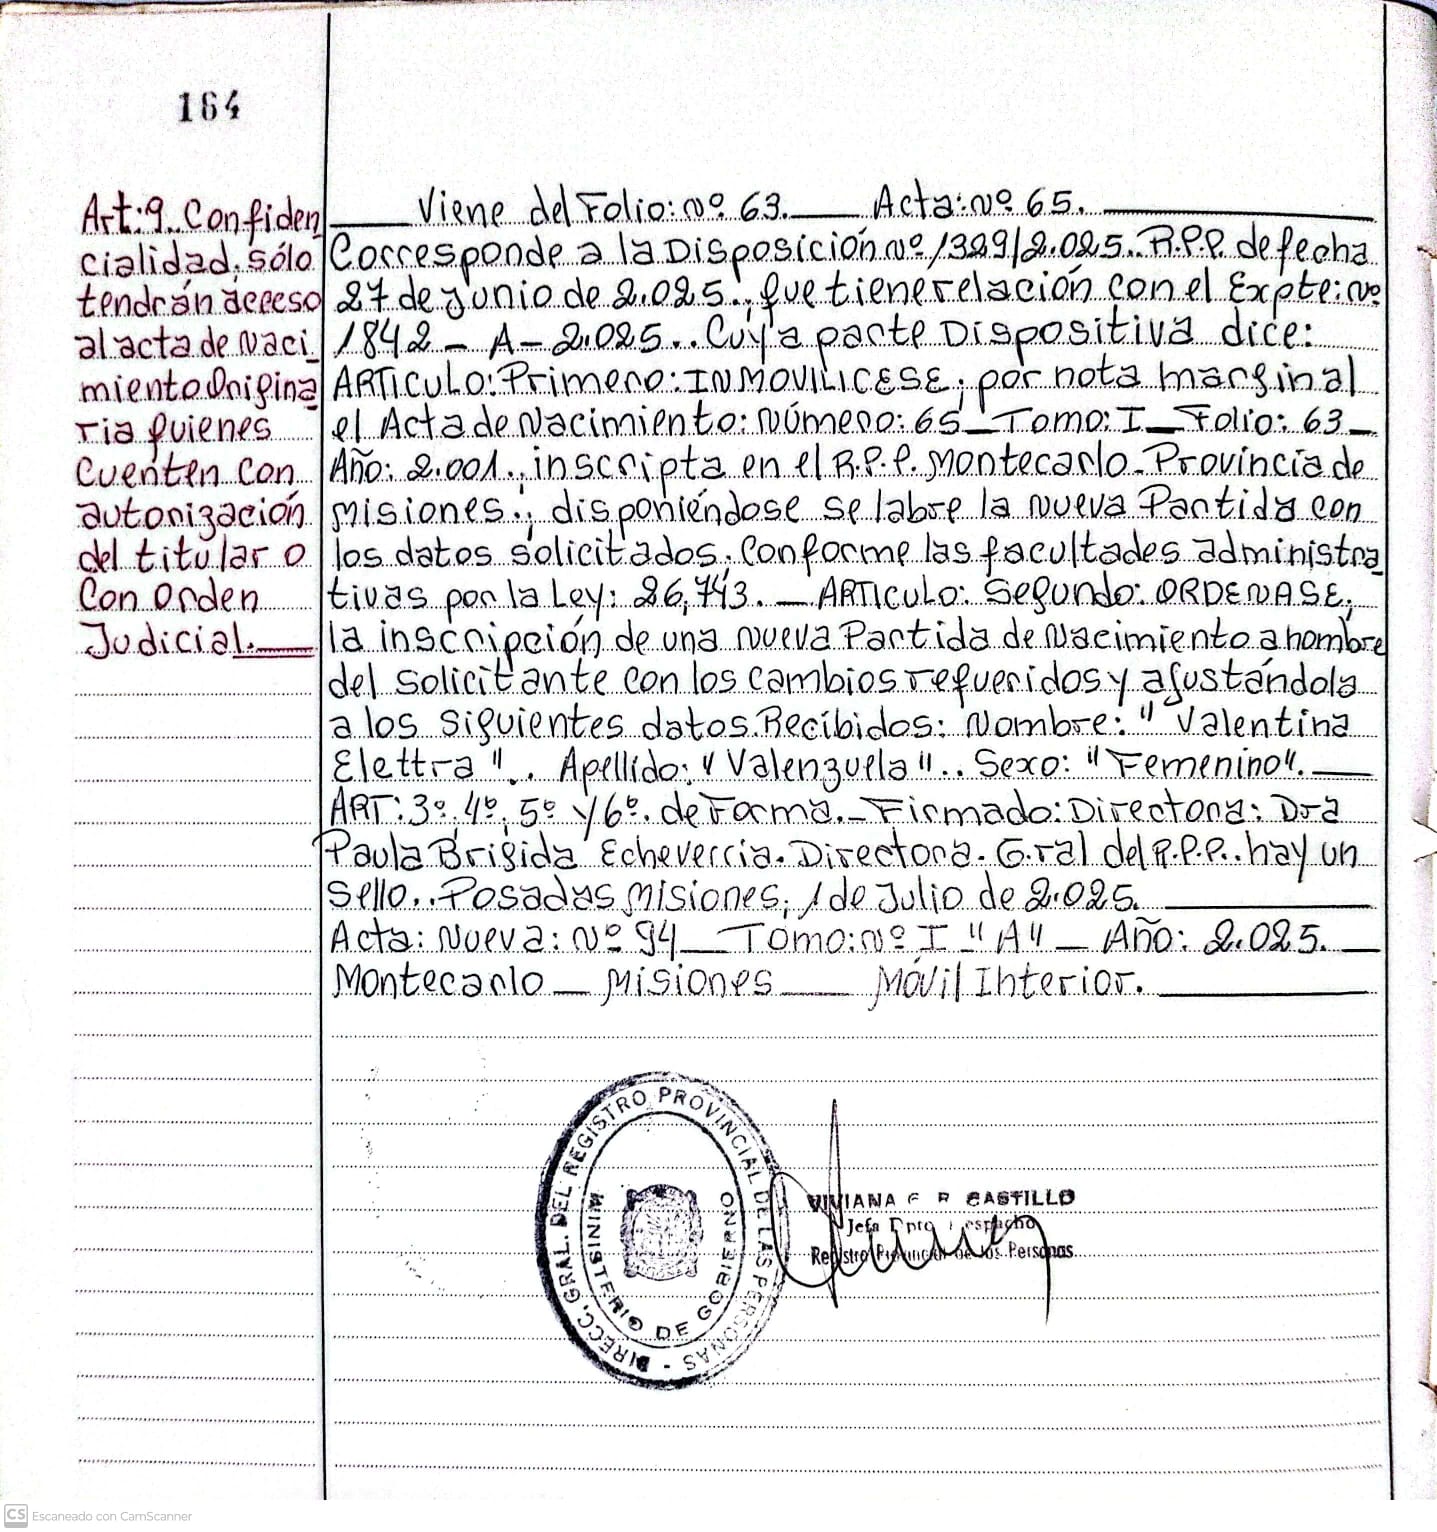 164
Art:9. Confiden
cialidad, sólo
tendrán acceso
al acta de Naci_
miento Origina
ria quienes
Cuenten con
autorización
del titular o
Con Orden
Judicial.
Viene del Folio: Nº 63. Acta: Nº 65.
Corresponde a la Disposición Nº 1329/2.025.. R.P.P. de fecha
27 de Junio de 2.025., que tiene relación con el Expte: Nº
1842 - A - 2.025.. Cuya parte Dispositiva dice:
ARTICULO: Primero: INMOVILICESE, por nota marginal
el Acta de Nacimiento: Número: 65 _ Tomo: I _ Folio: 63 _
Año: 2.001., inscripta en el R.P.P. Montecarlo - Provincia de
Misiones.; disponiéndose se labre la nueva Partida con
los datos solicitados, Conforme las facultades administra
tivas por la Ley: 26,743. _ ARTICULO: Segundo: ORDENASE,
la inscripción de una nueva Partida de Nacimiento a nombre
del solicitante con los cambios requeridos y ajustándola
a los siguientes datos Recibidos: Nombre: "Valentina
Elettra".. Apellido: "Valenzuela".. Sexo: "Femenino".
ART: 3º, 4º, 5º y 6º. de Forma. - Firmado: Directora: Dra
Paula Brigida Echeverria. Directora. G.ral del R.P.P.. hay un
Sello.. Posadas Misiones, 1 de Julio de 2.025.
Acta: Nueva: Nº 94 _ Tomo: Nº I "A" _ Año: 2.025.
Montecarlo _ Misiones _ Móvil Interior.
DIRECC. GRAL. DEL REGISTRO PROVINCIAL DE LAS PERSONAS -
MINISTERIO DE GOBIERNO
VIVIANA CASTILLO
Jefa Dpto Despacho
Registro Provincial de las Personas
CS Escaneado con CamScanner